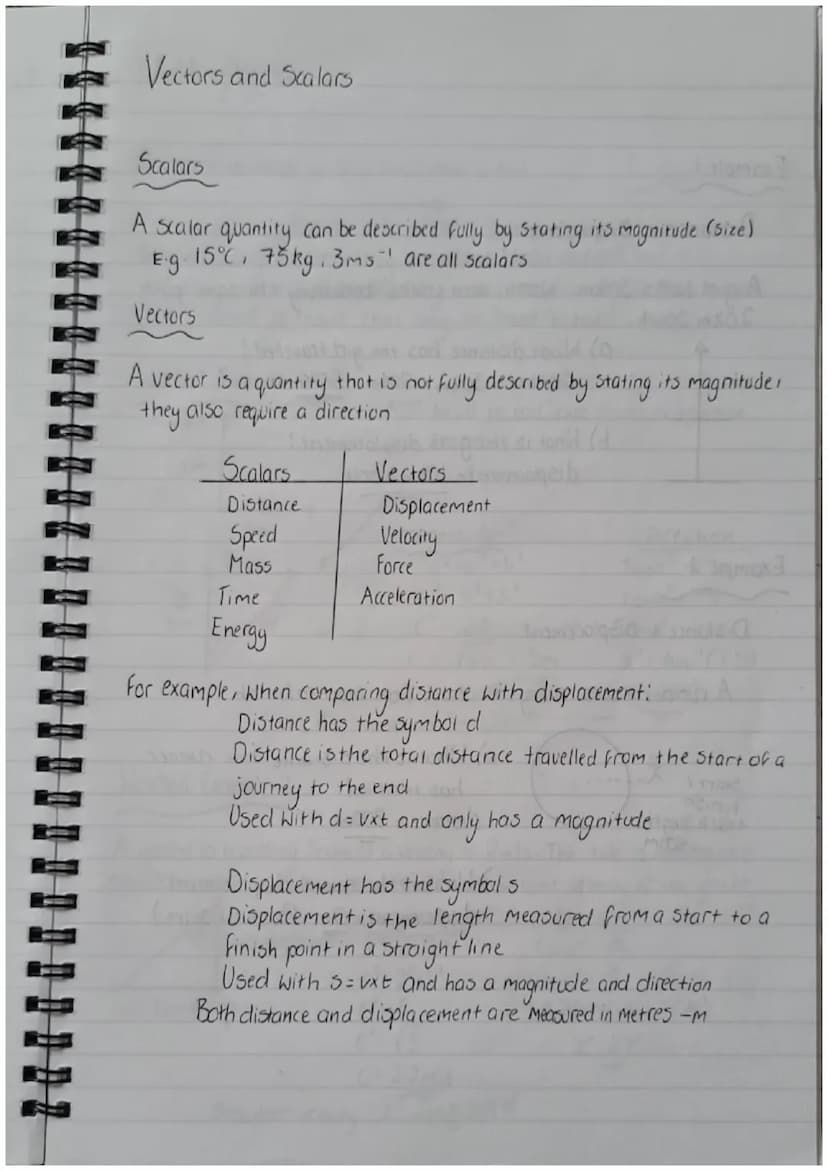 Vectors and Scalars
Scalars
A scalar quantity can be described fully by stating its magnitude (size)
E.g. 15°C, 75kg, 3ms⁻¹ are all scalars
Vectors
A vector is a quantity that is not fully described by stating its magnitude,
they also require a direction
Scalars Vectors
Distance Displacement
Speed Velocity
Mass Force
Time Acceleration
Energy
For example, when comparing distance with displacement:
Distance has the symbol d
Distance is the total distance travelled from the start of a
journey to the end
Used with d=vxt and only has a magnitude
Displacement has the symbol s
Displacement is the length measured from a start to a
finish point in a straight line
Used with s=vxt and has a magnitude and direction
Both distance and displacement are measured in metres -m